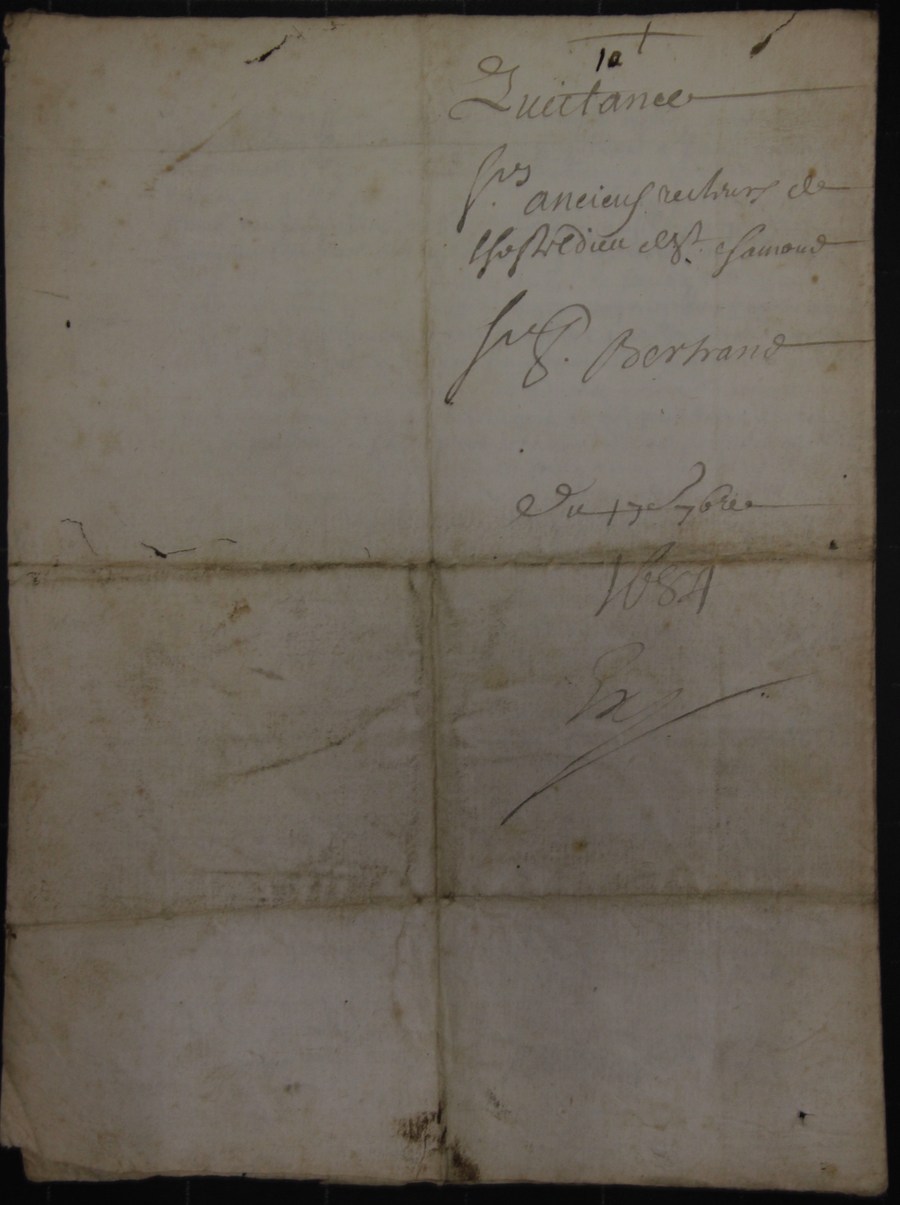 10
Quittance
Srs anciens recteurs de
lhosteldieu de St. chamond
Sr P. Bertrand
Du 17 7bre
1684
Ex